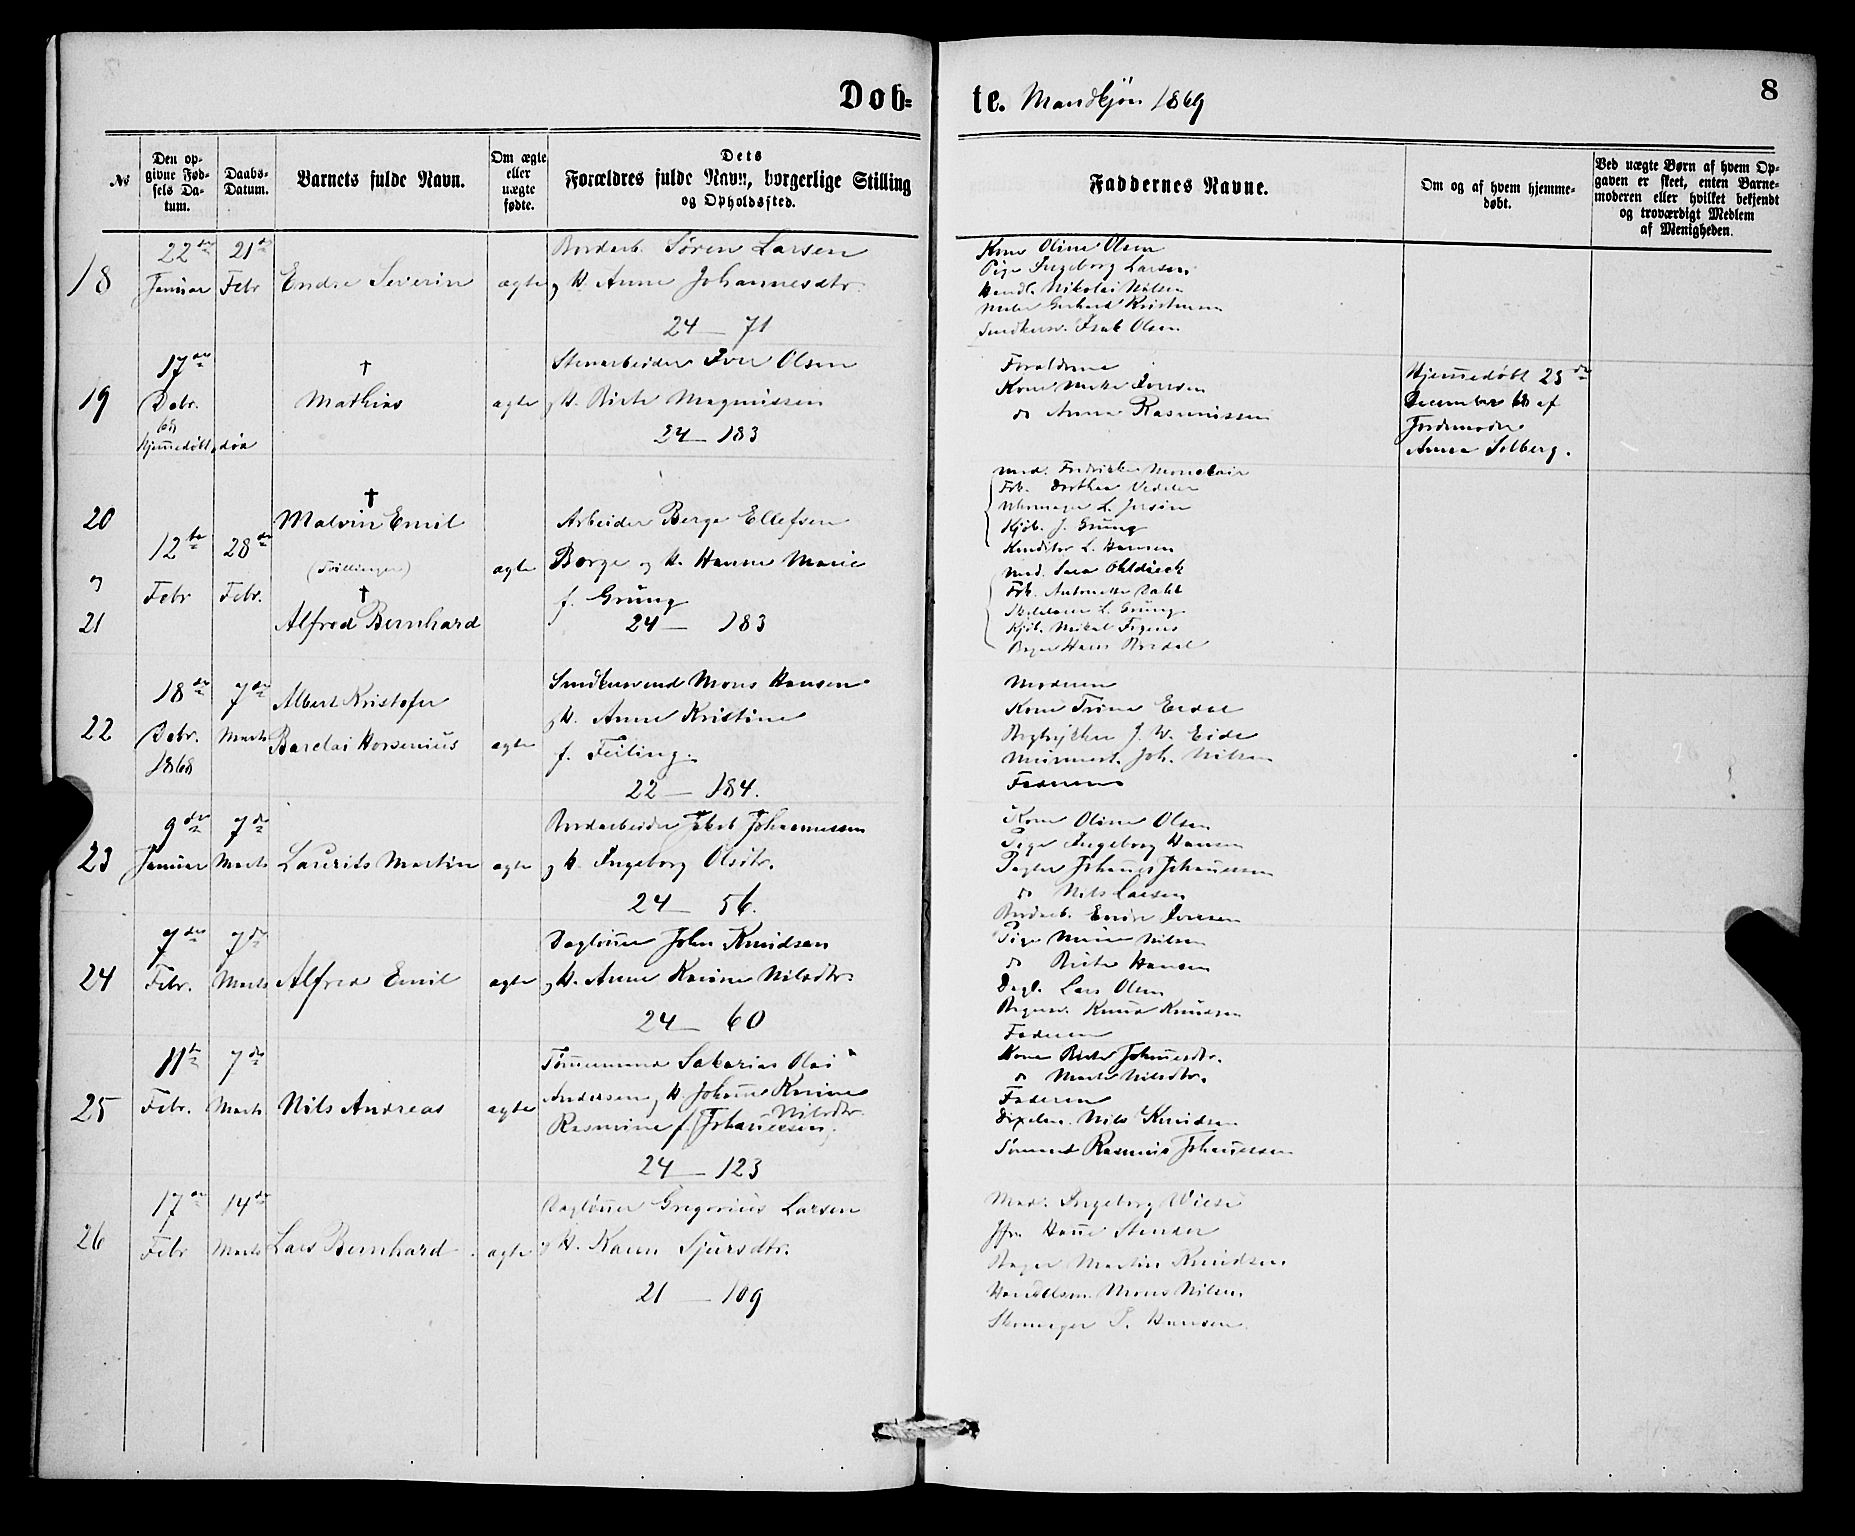 Døb= te. Mandkjön 1869
8
№
Den op-
givne Fød-
sels Da-
tum.
Daabs-
Datum.
Barnets fulde Navn.
Om ægte
eller
uægte
fødte.
Dets
Forældres fulde Navn, borgerlige Stilling
og Opholdssted.
Faddernes Navne.
Om og af hvem hjemme-
døbt.
Ved uægte Børn af hvem Op-
gaven er skeet, enten Barne-
moderen eller hvilket bekjendt
og troværdigt Medlem
af Menigheden.
18
22de
Januar
21de
Febr
Endre Severin
ægte
Bordarb. Sören Larsen
og H. Anne Johannesdtr.
24 — 71
Kone Oline Olsen
Pige Ingeborg Larsen
Handl. Nikolai Nilsen
Maler Gerhard Kristensen
Snedkersv. Isak Olsen
19
17de
Debr.
68
Hjemmedöbt
†
Mathias
ægte
Stenarbeider Iver Olsen
og H. Birte Magnussen
24 — 183
Forældrene
Kone Mette Iversen
do Anna Rasmussen
Hjemmedöbt 23de
December 68 af
Jordemoder
Anna Solberg.
20
og
21
12te
Febr
28de
Febr.
†
Malvin Emil
(Tvillinger)
†
Alfred Bernhard
ægte
Arbeider Berge Ellefsen
Borge og H. Hanne Marie
f. Grung
24 — 183
Mad. Fredrikke Monclair
Frk. Dorthea Vedeler
Uhrmager L. Jersin
Kjöb. J. Grung
Konditor L. Hansen
Mad. Sara Ohldieck
Frk. Antonette Dahl
L. Grung
Kjöb. Mikal
Hans
22
18de
Debr.
1868
7de
Marts
Albert Kristofer
Barclai Horsenius
ægte
Snedkersvend Mons Hansen
og H. Anne Kristine
f. Feiling.
22 — 184.
Moderen
Kone Trine Eidel
Bogtrykker J. W. Eide
Muurmest. Joh. Nilsen
Faderen
23
9de
Januar
7de
Marts
Laurits Martin
ægte
Bordarbeider Jakob Johannessen
og H. Ingeborg Olsdtr.
24 — 56.
Kone Oline Olsen
Pige Ingeborg Hansen
Johannes Johannessen
do Nils Larsen
Bordarb. Endre Iversen
24
7de
Febr.
7de
Marts
Alfred Emil
ægte
Daglönner John Knudsen
og H. Anne Karine Nilsdtr.
24 — 60
Pige Marie Nilsen
do Birte Hansen
Dagl. Lars Olsen
Knud Knudsen
Faderen
25
11te
Febr.
7de
Marts
Nils Andreas
ægte
Tömmermand Sakarias Olai
Andersen og H. Johanne Karine
Rasmine f. Johannessen. Nilsdtr.
24 — 123
Kone Birte Johannesdtr.
do Marta Nilsdtr.
Faderen
Nils Knudsen
Sömand Rasmus Johannessen
26
17de
Febr
14de
Marts
Lars Bernhard
ægte
Daglönner Gregorius Larsen
og H. Karen Sjursdtr.
21 — 109
Mad. Ingeborg Wiese
Jfr. Hanne Stender
Martin Knudsen
Handelsm. Mons Nilsen
Skomager P. Hansen